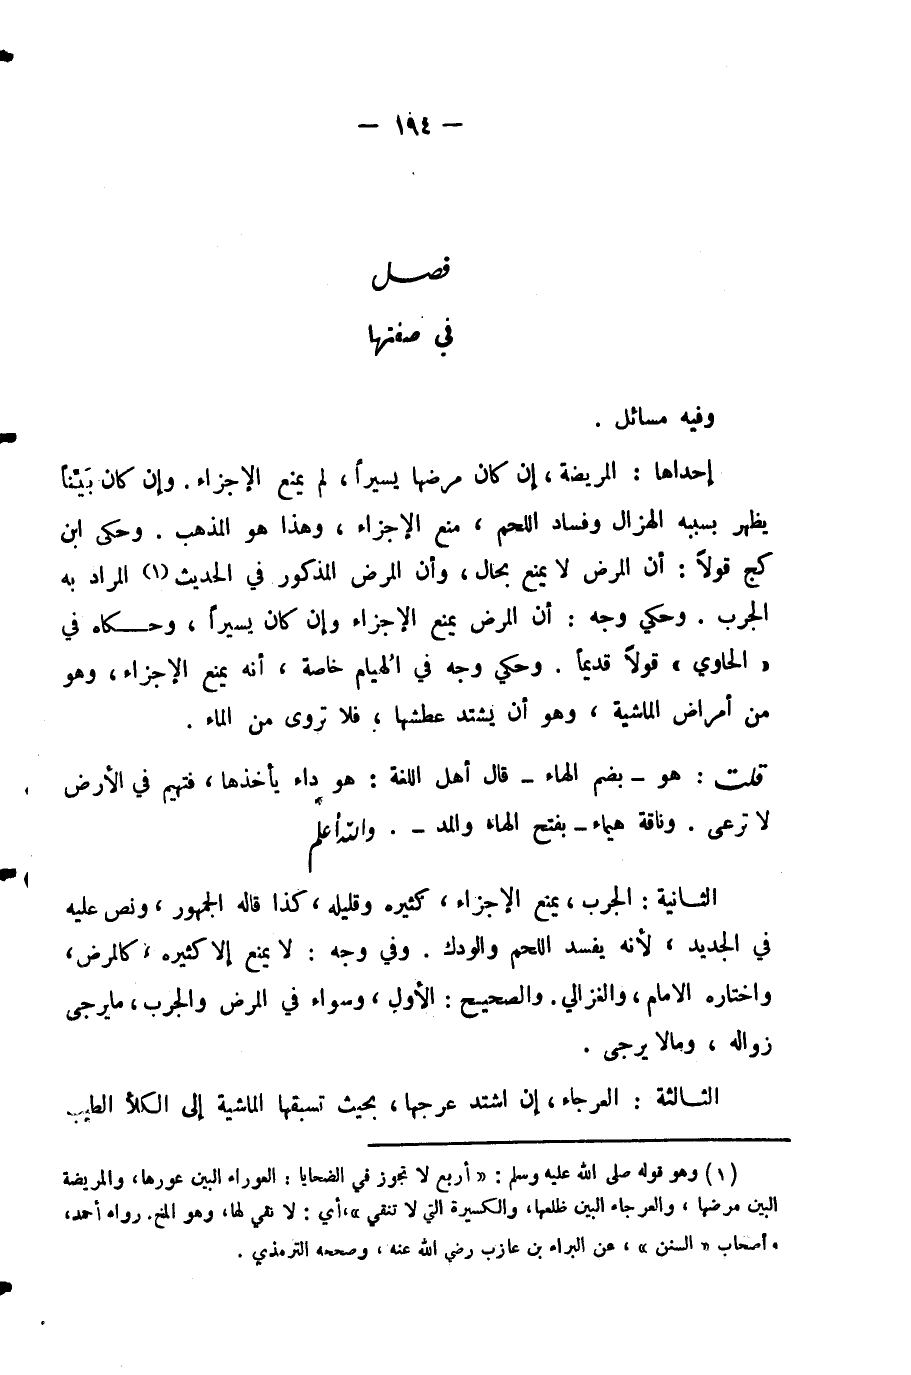 — ١٩٤ —
فصـــل
في صفتها
وفيه مسائل .
إحداها : المريضة ، إن كان مرضها يسيراً ، لم يمنع الإجزاء . وإن كان بَيِّناً
يظهر بسببه الهزال وفساد اللحم ، منع الإجزاء ، وهذا هو المذهب . وحكى ابن
كج قولاً : أن المرض لا يمنع بحال ، وأن المرض المذكور في الحديث (١) المراد به
الجرب . وحكي وجه : أن المرض يمنع الإجزاء وإن كان يسيراً ، وحـــكاه في
« الحاوي » قولاً قديماً . وحكي وجه في الهيام خاصة ، أنه يمنع الإجزاء ، وهو
من أمراض الماشية ، وهو أن يشتد عطشها ، فلا تروى من الماء .
قلت : هو ــ بضم الهاء ــ قال أهل اللغة : هو داء يأخذها ، فتهيم في الأرض
لا ترعى . وناقة هيماء ــ بفتح الهاء والمد ــ . والله أعلم
الثـــانية : الجرب ، يمنع الإجزاء ، كثيره وقليله ، كذا قاله الجمهور ، ونص عليه
في الجديد ، لأنه يفسد اللحم والودك . وفي وجه : لا يمنع إلا كثيره ، كالمرض ،
واختاره الامام ، والغزالي . والصحيح : الأول ، وسواء في المرض والجرب ، مايرجى
زواله ، ومالا يرجى .
الثـــالثة : العرجاء ، إن اشتد عرجها ، بحيث تسبقها الماشية إلى الكلأ الطيب
(١) وهو قوله صلى الله عليه وسلم : « أربع لا تجوز في الضحايا : العوراء البين عورها ، والمريضة
البين مرضها ، والعرجاء البين ظلعها ، والكسيرة التي لا تنقي » ، أي : لا نقي لها ، وهو المخ . رواه أحمد ،
وأصحاب « السنن » ، عن البراء بن عازب رضي الله عنه ، وصححه الترمذي .